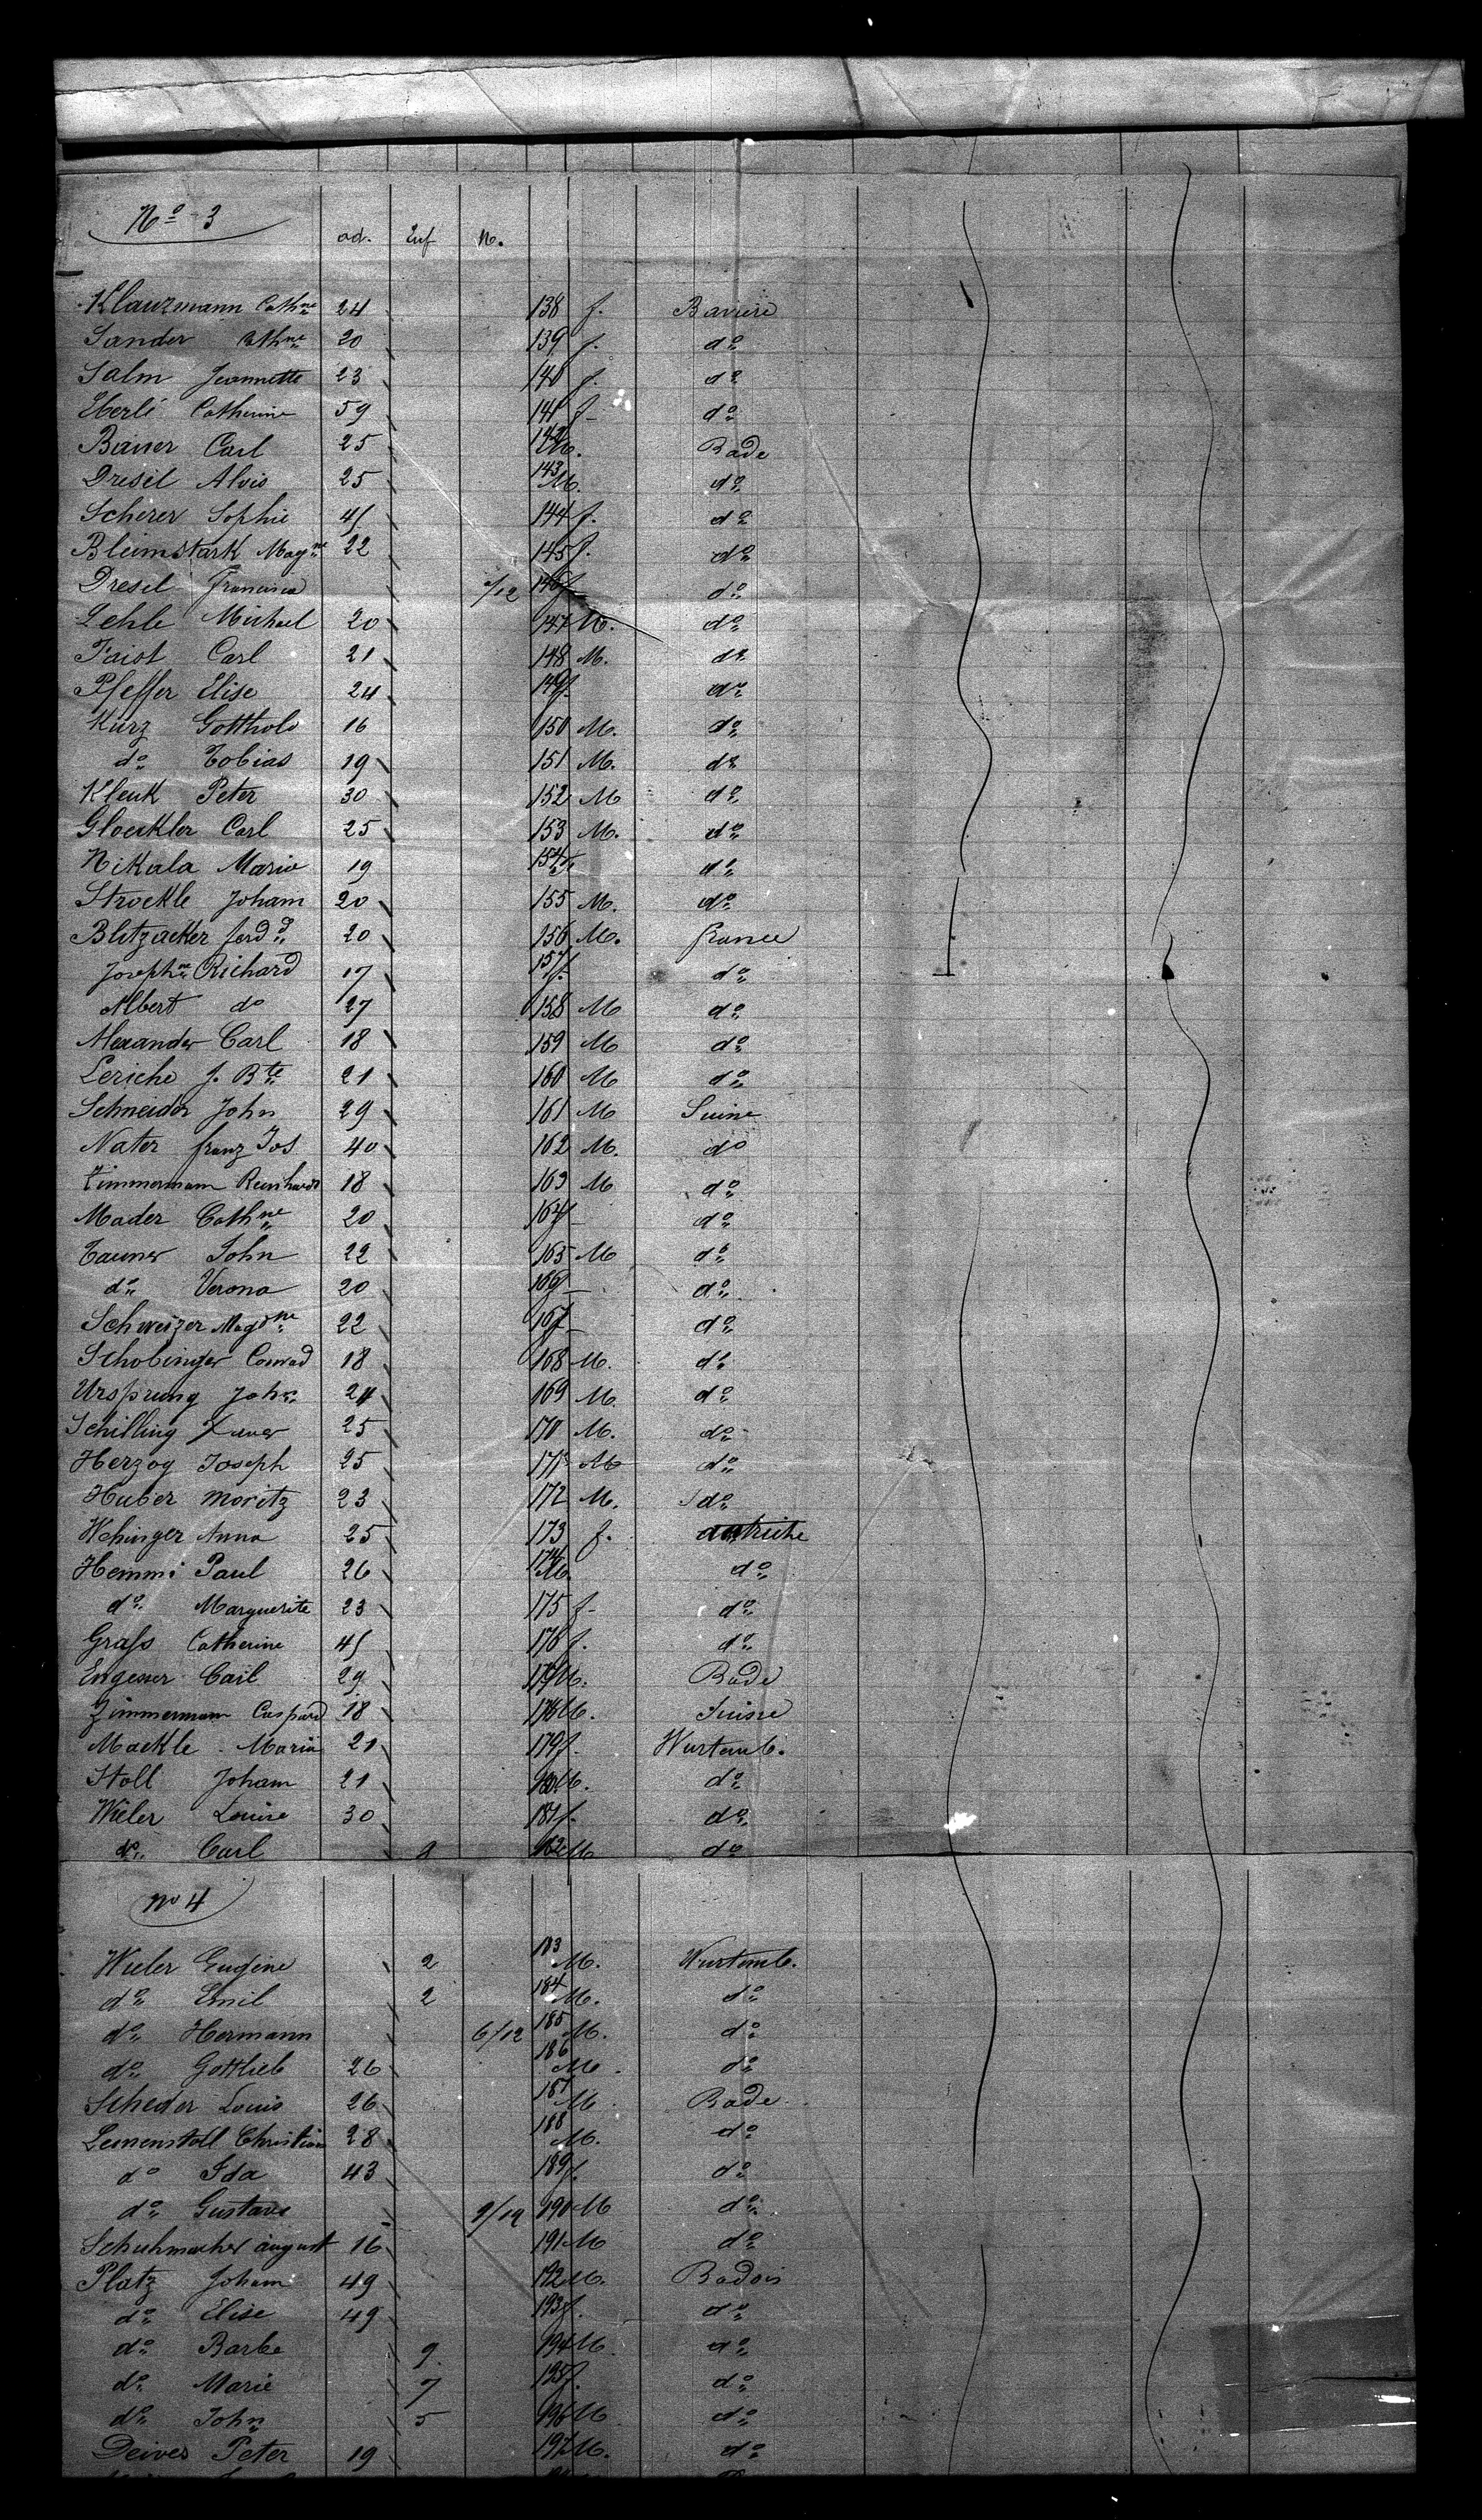 No 3
ad. Enf N.
Klauzmann Cathne 24 138 f. Baviere
Sander Cathne 20 139 f. do
Salm Jeannette 23 140 f. do
Eberlé Catherine 59 141 f do
Bauer Carl 25 142 M. Bade
Dresel Alois 25 143 M. do
Scherer Sophie 45 144 f. do
Bleimstark Magne 22 145 f. do
Dresel Francisca /12 146 f do
Lehle Michael 20 147 M. do
Faist Carl 21 148 M. do
Pfeffer Elise 24 149 f do
Kurz Gotthold 16 150 M. do
do Tobias 19 151 M. do
Klenk Peter 30 152 M do
Gloeckler Carl 25 153 M. do
Nikala Marie 19 154 f do
Stroekle Joham 20 155 M. do
Blitzacker ferdd 20 156 M. france
Josephne Richard 17 157 f. do
Albert do 27 158 M do
Alexander Carl 18 159 M do
Leriche J. Bte 21 160 M do
Schneider John 29 161 M Suisse
Nater franz Jos 40 162 M. do
Zimmermann Reinhardt 18 163 M do
Mader Cathne 20 164 f do
Tauner John 22 165 M do
do Verona 20 166 f do
Schweizer Magdne 22 167 f do
Schobinger Conrad 18 168 M. do
Ursprung Johs 24 169 M. do
Schilling Xaver 25 170 M. do
Herzog Joseph 25 171 M do
Huber Moritz 23 172 M. do
Wehinger Anna 25 173 f. autriche
Hemmi Paul 26 174 M. do
do Marguerite 23 175 f do
Grass Catherine 45 176 f. do
Engesser Carl 29 177 M. Bade
Zimmermann Caspard 18 178 M. Suisse
Maekle Maria 21 179 f. Wurtemb.
Stoll Joham 21 180 M. do
Wieler Louise 30 181 f. do
do Carl 182 M do
No 4
Wieler Eugéne 2 183 M. Wurtemb.
do Emil 2 184 M. do
do Hermann 6/12 185 M. do
do Gottlieb 26 186 M do
Scheder Louis 26 187 M Bade
Leinenstoll Christian 28 188 M. do
do Ida 43 189 f. do
do Gustave 9/12 190 M do
Schuhmacher august 16 191 M do
Platz Joham 49 192 M. Badois
do Elise 49 193 f. do
do Barbe 9 194 M do
do Marie 7 195 f. do
do John 5 196 M do
Deives Peter 19 197 M. do